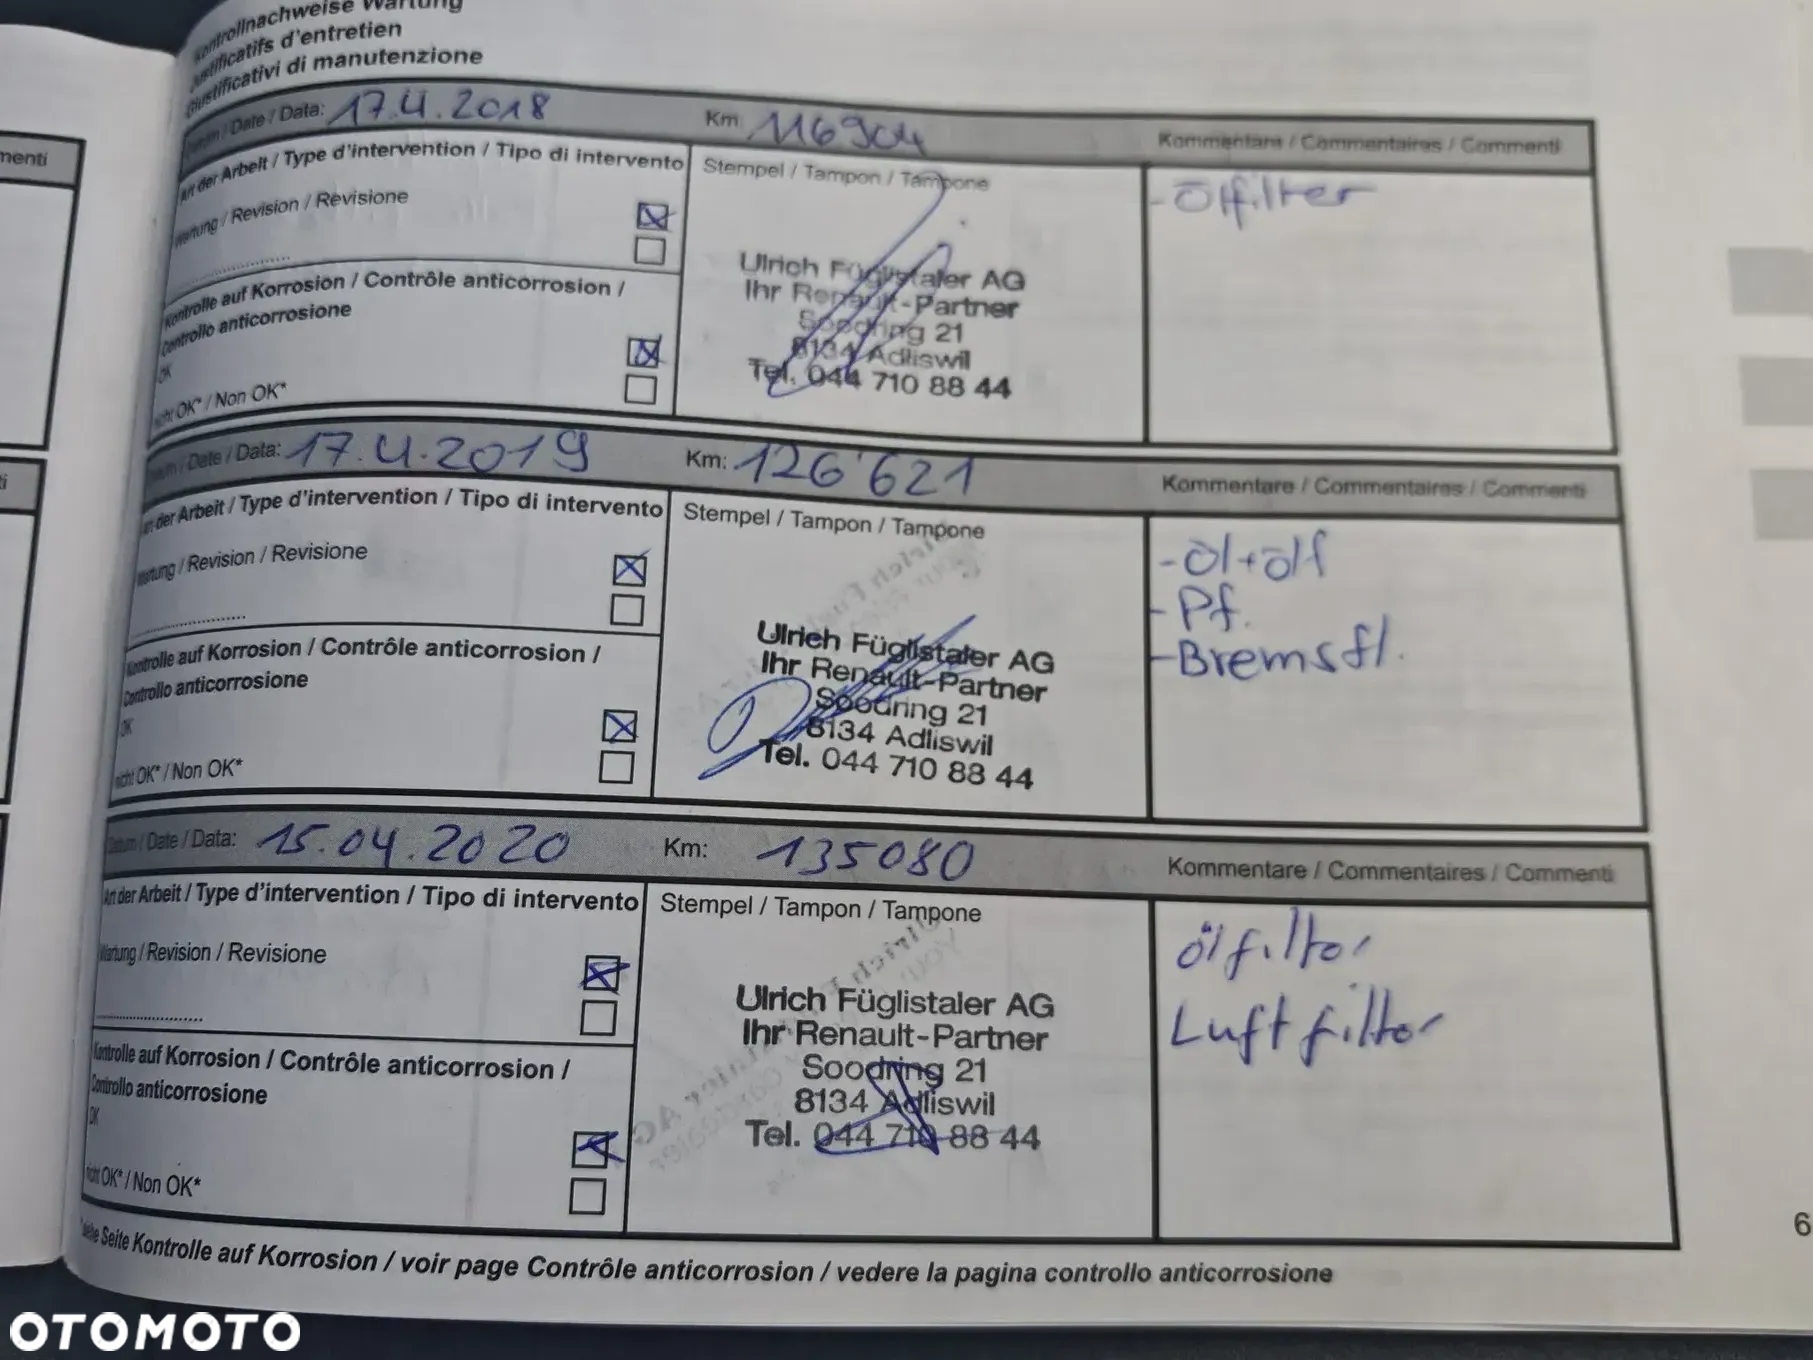 Kontrollnachweise Wartung
Justificatifs d'entretien
Giustificativi di manutenzione
Datum / Date / Data: 17.4.2018 Km: 116904 Kommentare / Commentaires / Commenti
Art der Arbeit / Type d'intervention / Tipo di intervento
Stempel / Tampon / Tampone
- Ölfilter
Wartung / Revision / Revisione
Ulrich Füglistaler AG
Ihr Renault-Partner
Soodring 21
8134 Adliswil
Tel. 044 710 88 44
Kontrolle auf Korrosion / Contrôle anticorrosion /
Controllo anticorrosione
OK
nicht OK* / Non OK*
Datum / Date / Data: 17.4.2019 Km: 126'621 Kommentare / Commentaires / Commenti
Art der Arbeit / Type d'intervention / Tipo di intervento
Stempel / Tampon / Tampone
- Öl + Ölf
- Pf.
- Bremsfl.
Wartung / Revision / Revisione
Ulrich Füglistaler AG
Ihr Renault-Partner
Soodring 21
8134 Adliswil
Tel. 044 710 88 44
Kontrolle auf Korrosion / Contrôle anticorrosion /
Controllo anticorrosione
OK
nicht OK* / Non OK*
Datum / Date / Data: 15.04.2020 Km: 135080 Kommentare / Commentaires / Commenti
Art der Arbeit / Type d'intervention / Tipo di intervento
Stempel / Tampon / Tampone
Ölfilter
Luftfilter
Wartung / Revision / Revisione
Ulrich Füglistaler AG
Ihr Renault-Partner
Soodring 21
8134 Adliswil
Tel. 044 710 88 44
Kontrolle auf Korrosion / Contrôle anticorrosion /
Controllo anticorrosione
OK
nicht OK* / Non OK*
siehe Seite Kontrolle auf Korrosion / voir page Contrôle anticorrosion / vedere la pagina controllo anticorrosione
6
OTOMOTO